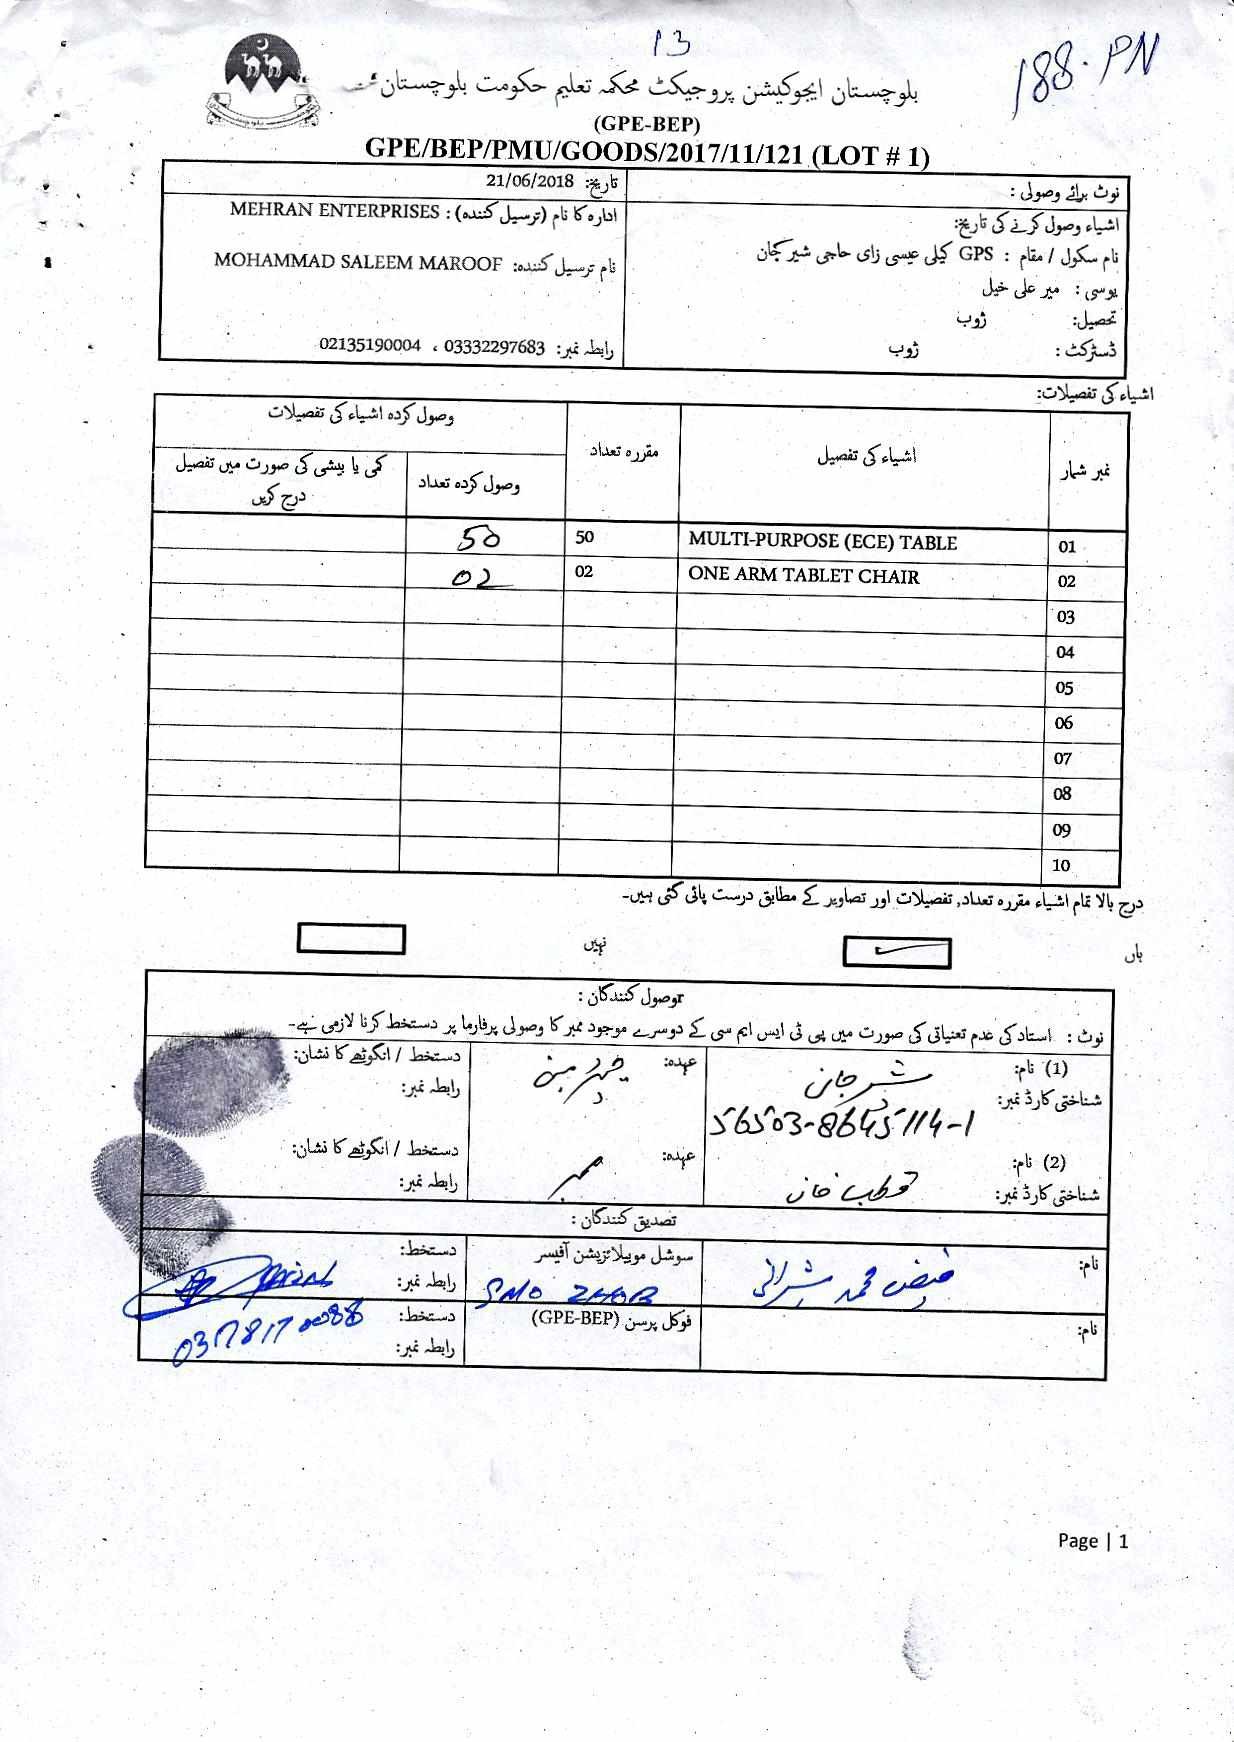 13
188-PN
بلوچستان ایجوکیشن پروجیکٹ محکمہ تعلیم حکومت بلوچستان
(GPE-BEP)
GPE/BEP/PMU/GOODS/2017/11/121 (LOT # 1)
نوٹ برائے وصولی :
تاریخ: 21/06/2018
اشیاء وصول کرنے کی تاریخ:
نام سکول / مقام : GPS کیلی عیسی زای حاجی شیرجان
یوسی : میر علی خیل
تحصیل: ژوب
ڈسٹرکٹ : ژوب
ادارہ کا نام (ترسیل کنندہ) : MEHRAN ENTERPRISES
نام ترسیل کنندہ: MOHAMMAD SALEEM MAROOF
رابطہ نمبر: 03332297683 ، 02135190004
اشیاء کی تفصیلات:
نمبر شمار اشیاء کی تفصیل مقررہ تعداد وصول کردہ اشیاء کی تفصیلات
وصول کردہ تعداد کمی یا بیشی کی صورت میں تفصیل
درج کریں
01 MULTI-PURPOSE (ECE) TABLE 50 50
02 ONE ARM TABLET CHAIR 02 02
03
04
05
06
07
08
09
10
درج بالا تمام اشیاء مقررہ تعداد, تفصیلات اور تصاویر کے مطابق درست پائی گئی ہیں۔
ہاں نہیں
وصول کنندگان :
نوٹ : استاد کی عدم تعنیاتی کی صورت میں پی ٹی ایس ایم سی کے دوسرے موجود ممبر کا وصولی پرفارما پر دستخط کرنا لازمی ہے۔
(1) نام: شیر جان عہدہ: چیرمین دستخط / انگوٹھے کا نشان:
شناختی کارڈ نمبر: 56503-8645114-1 رابطہ نمبر:
(2) نام: قطب خان عہدہ: ممبر دستخط / انگوٹھے کا نشان:
شناختی کارڈ نمبر: رابطہ نمبر:
تصدیق کنندگان :
نام: فیض محمد شیرانی سوشل موبیلائزیشن آفیسر دستخط:
SMO ZHOB رابطہ نمبر:
نام: فوکل پرسن (GPE-BEP) دستخط:
رابطہ نمبر:
Page | 1